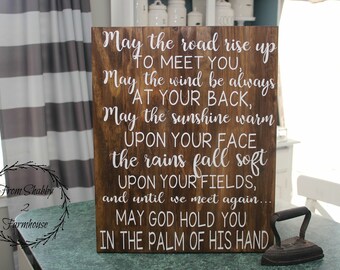 May the road rise up
TO MEET YOU,
May the wind be always
AT YOUR BACK,
May the sunshine warm
UPON YOUR FACE
the rains fall soft
UPON YOUR FIELDS,
and until we meet again...
MAY GOD HOLD YOU
IN THE PALM OF HIS HAND
From Shabby
2
Farmhouse